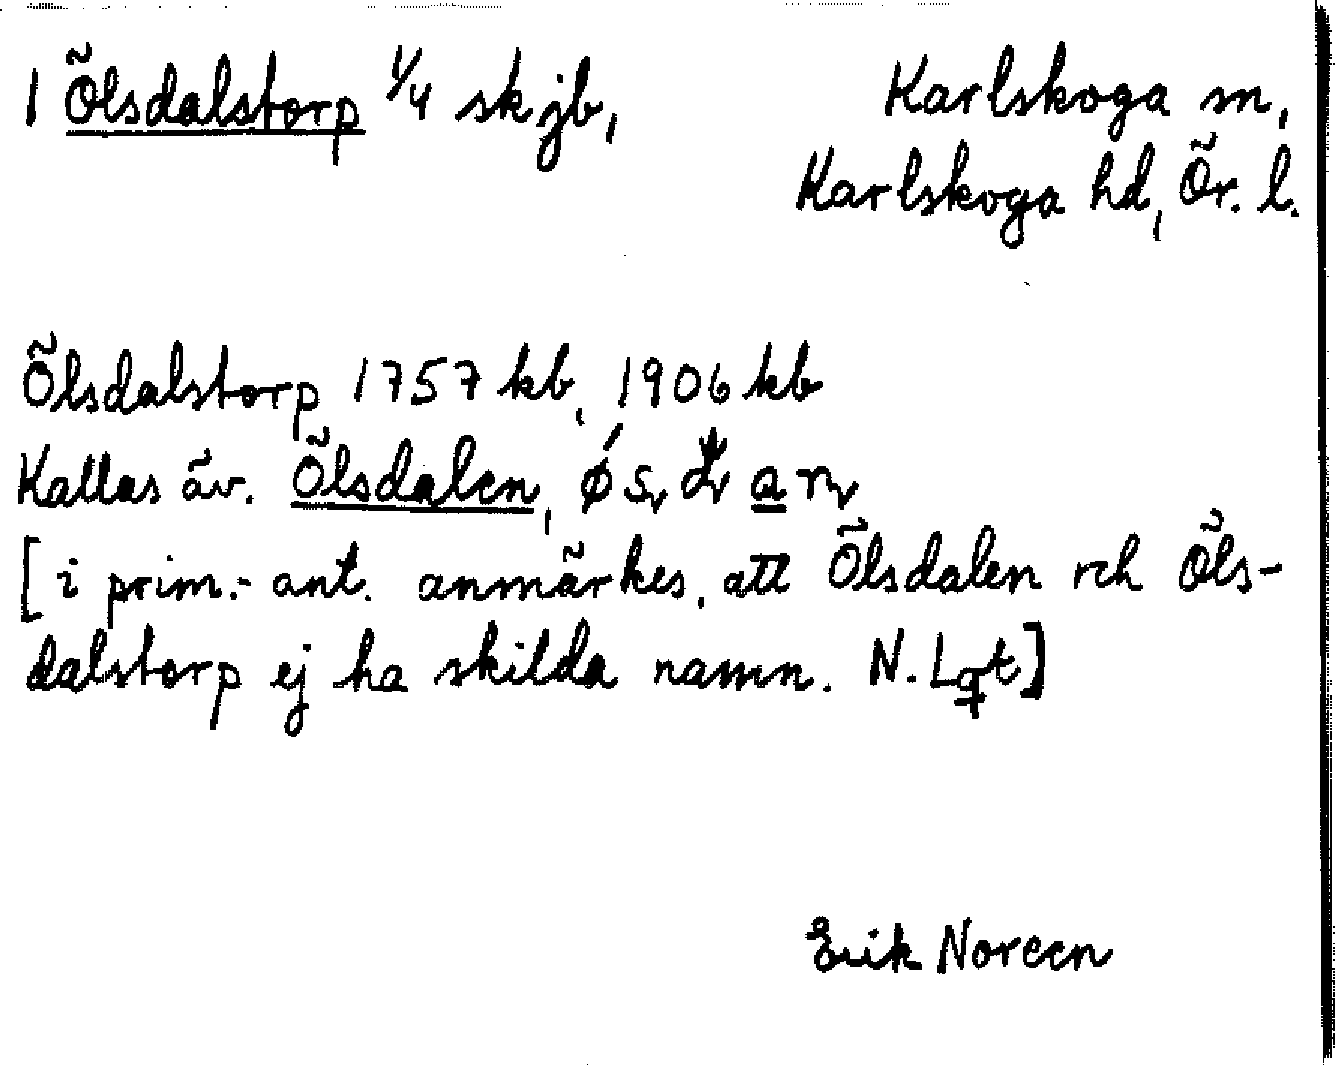 1 Ölsdalstorp 1/4 skjb, Karlskoga sn,
Karlskoga hd, Ör. l.
Ölsdalstorp 1757 kb, 1906 kb
Kallas äv. Ölsdalen,
[i prim.- ant. anmärkes, att Ölsdalen och Öls-
dalstorp ej ha skilda namn. N. Lqt]
Erik Noreen